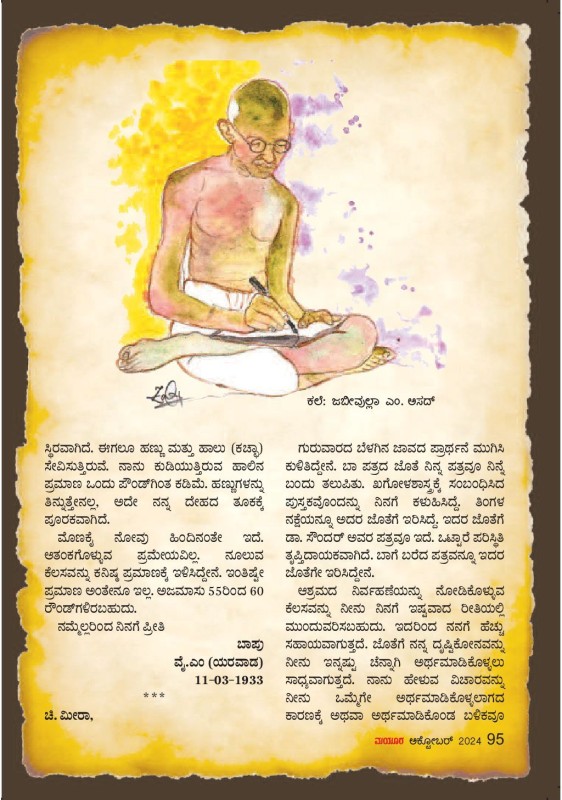 ಕಲೆ: ಜಬೀವುಲ್ಲಾ ಎಂ. ಅಸದ್
ಸ್ಥಿರವಾಗಿದೆ. ಈಗಲೂ ಹಣ್ಣು ಮತ್ತು ಹಾಲು (ಕಚ್ಚಾ)
ಸೇವಿಸುತ್ತಿರುವೆ. ನಾನು ಕುಡಿಯುತ್ತಿರುವ ಹಾಲಿನ
ಪ್ರಮಾಣ ಒಂದು ಪೌಂಡ್‌ಗಿಂತ ಕಡಿಮೆ. ಹಣ್ಣುಗಳನ್ನು
ತಿನ್ನುತ್ತೇನಲ್ಲ, ಅದೇ ನನ್ನ ದೇಹದ ತೂಕಕ್ಕೆ
ಪೂರಕವಾಗಿದೆ.
ಮೊಣಕೈ ನೋವು ಹಿಂದಿನಂತೇ ಇದೆ.
ಆತಂಕಗೊಳ್ಳುವ ಪ್ರಮೇಯವಿಲ್ಲ. ನೂಲುವ
ಕೆಲಸವನ್ನು ಕನಿಷ್ಠ ಪ್ರಮಾಣಕ್ಕೆ ಇಳಿಸಿದ್ದೇನೆ. ಇಂತಿಷ್ಟೇ
ಪ್ರಮಾಣ ಅಂತೇನೂ ಇಲ್ಲ. ಅಜಮಾಸು 55ರಿಂದ 60
ರೌಂಡ್‌ಗಳಿರಬಹುದು.
ನಮ್ಮೆಲ್ಲರಿಂದ ನಿನಗೆ ಪ್ರೀತಿ
ಬಾಪು
ವೈ.ಎಂ (ಯರವಾಡ)
11-03-1933
***
ಚಿ. ಮೀರಾ,
ಗುರುವಾರದ ಬೆಳಗಿನ ಜಾವದ ಪ್ರಾರ್ಥನೆ ಮುಗಿಸಿ
ಕುಳಿತಿದ್ದೇನೆ. ಬಾ ಪತ್ರದ ಜೊತೆ ನಿನ್ನ ಪತ್ರವೂ ನಿನ್ನೆ
ಬಂದು ತಲುಪಿತು. ಖಗೋಳಶಾಸ್ತ್ರಕ್ಕೆ ಸಂಬಂಧಿಸಿದ
ಪುಸ್ತಕವೊಂದನ್ನು ನಿನಗೆ ಕಳುಹಿಸಿದ್ದೆ. ತಿಂಗಳ
ನಕ್ಷೆಯನ್ನೂ ಅದರ ಜೊತೆಗೆ ಇರಿಸಿದ್ದೆ. ಇದರ ಜೊತೆಗೆ
ಡಾ. ಸೌಂದರ್ ಅವರ ಪತ್ರವೂ ಇದೆ. ಒಟ್ಟಾರೆ ಪರಿಸ್ಥಿತಿ
ತೃಪ್ತಿದಾಯಕವಾಗಿದೆ. ಬಾಗೆ ಬರೆದ ಪತ್ರವನ್ನೂ ಇದರ
ಜೊತೆಗೇ ಇರಿಸಿದ್ದೇನೆ.
ಆಶ್ರಮದ ನಿರ್ವಹಣೆಯನ್ನು ನೋಡಿಕೊಳ್ಳುವ
ಕೆಲಸವನ್ನು ನೀನು ನಿನಗೆ ಇಷ್ಟವಾದ ರೀತಿಯಲ್ಲಿ
ಮುಂದುವರಿಸಬಹುದು. ಇದರಿಂದ ನನಗೆ ಹೆಚ್ಚು
ಸಹಾಯವಾಗುತ್ತದೆ. ಜೊತೆಗೆ ನನ್ನ ದೃಷ್ಟಿಕೋನವನ್ನು
ನೀನು ಇನ್ನಷ್ಟು ಚೆನ್ನಾಗಿ ಅರ್ಥಮಾಡಿಕೊಳ್ಳಲು
ಸಾಧ್ಯವಾಗುತ್ತದೆ. ನಾನು ಹೇಳುವ ವಿಚಾರವನ್ನು
ನೀನು ಒಮ್ಮೆಗೇ ಅರ್ಥಮಾಡಿಕೊಳ್ಳಲಾಗದ
ಕಾರಣಕ್ಕೆ ಅಥವಾ ಅರ್ಥಮಾಡಿಕೊಂಡ ಬಳಿಕವೂ
ಮಯೂರ ಅಕ್ಟೋಬರ್ 2024 95